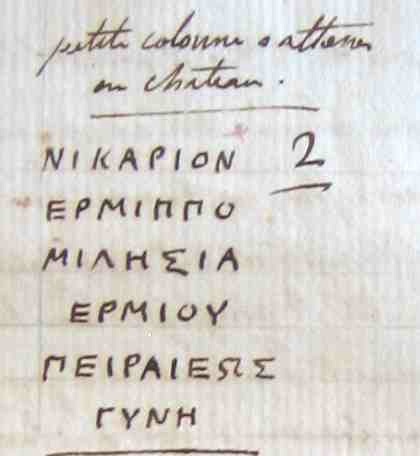 petite colonne a athenes
au chateau.
ΝΙΚΑΡΙΟΝ 2
ΕΡΜΙΠΠΟ
ΜΙΛΗΣΙΑ
ΕΡΜΙΟΥ
ΠΕΙΡΑΙΕΩΣ
ΓΥΝΗ